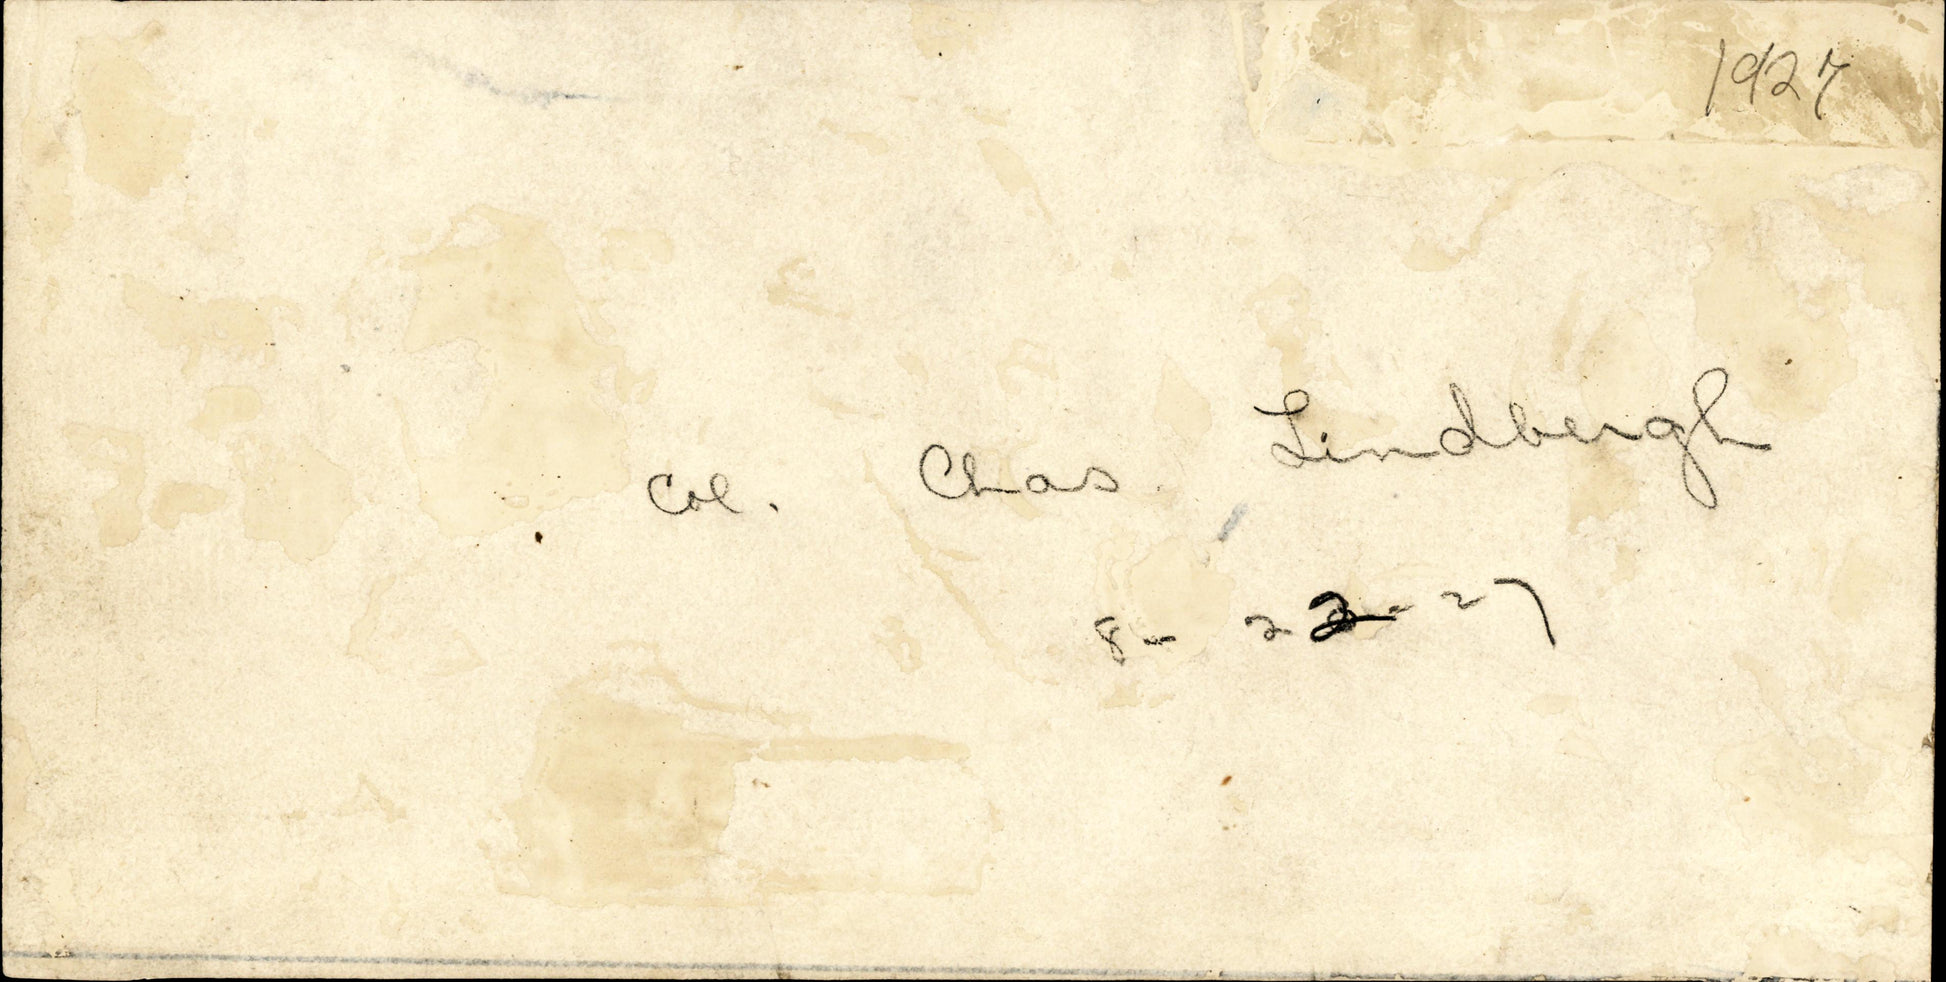 1927
Col. Chas. Lindbergh
8-22-27